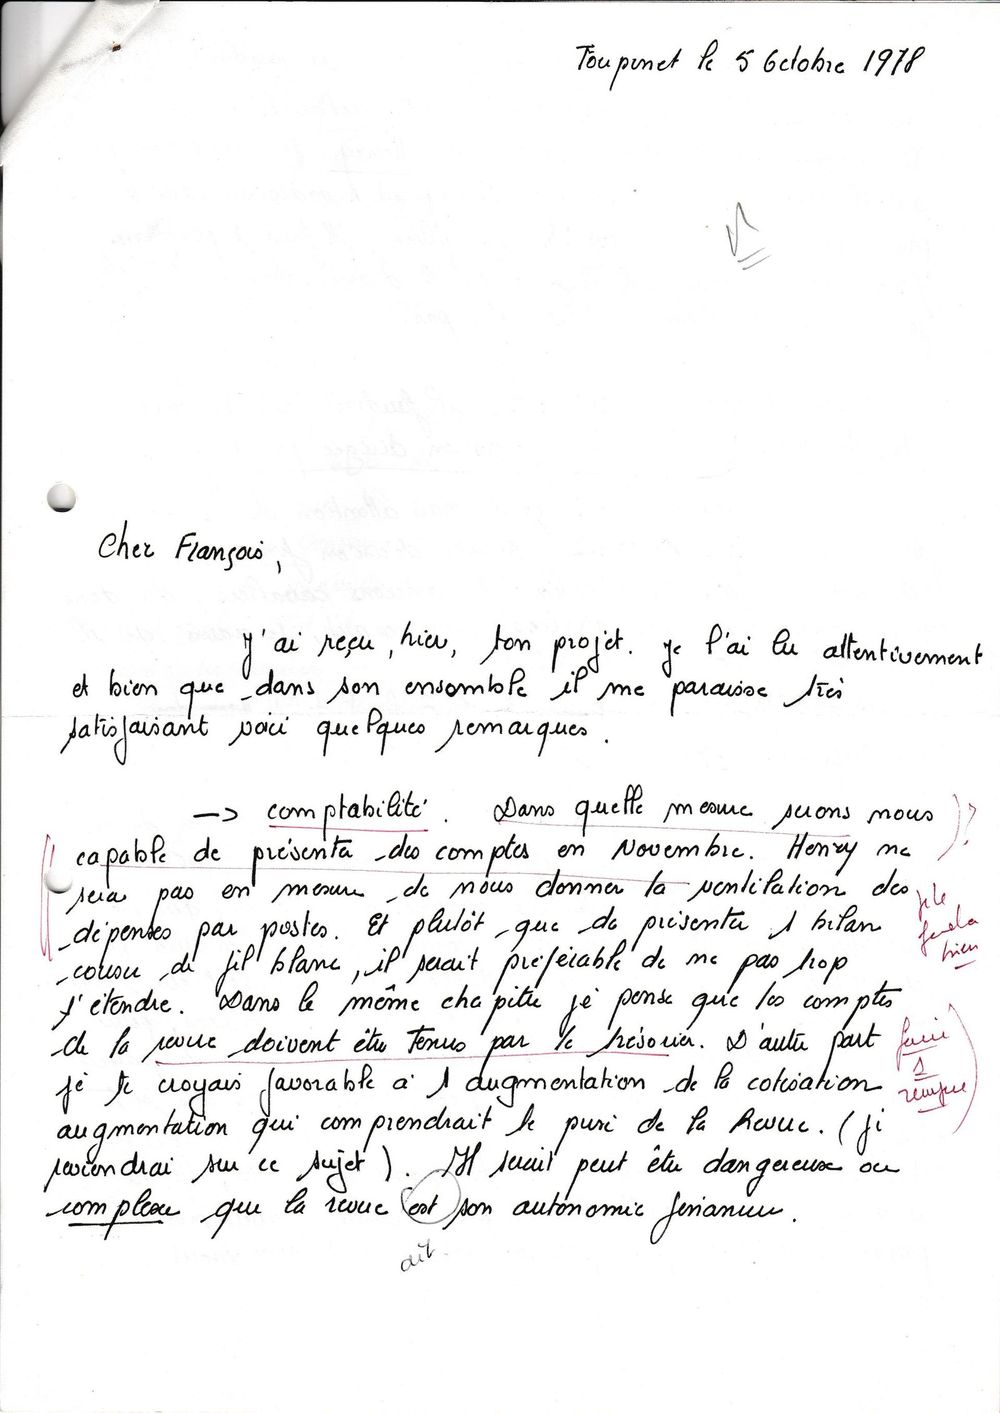 Toupinet le 5 Octobre 1978
Cher François,
J'ai reçu, hier, ton projet. je l'ai lu attentivement
et bien que dans son ensemble il me paraisse très
satisfaisant voici quelques remarques.
-> comptabilité. Dans quelle mesure serons nous )?
capable de présenter des comptes en Novembre. Henry ne
sera pas en mesure de nous donner la ventilation des
dépenses par postes. Et plutôt que de présenter 1 bilan
cousu de fil blanc, il serait préférable de ne pas trop
s'étendre. Dans le même chapitre je pense que les comptes
de la revue doivent être tenus par le trésorier. D'autre part
je te croyais favorable à 1 augmentation de la cotisation
augmentation qui comprendrait le prix de la Revue. (je
reviendrai sur ce sujet). Il serait peut être dangereux ou
complexe que la revue est son autonomie financière.
ait
je le
fera
bien
faire
1